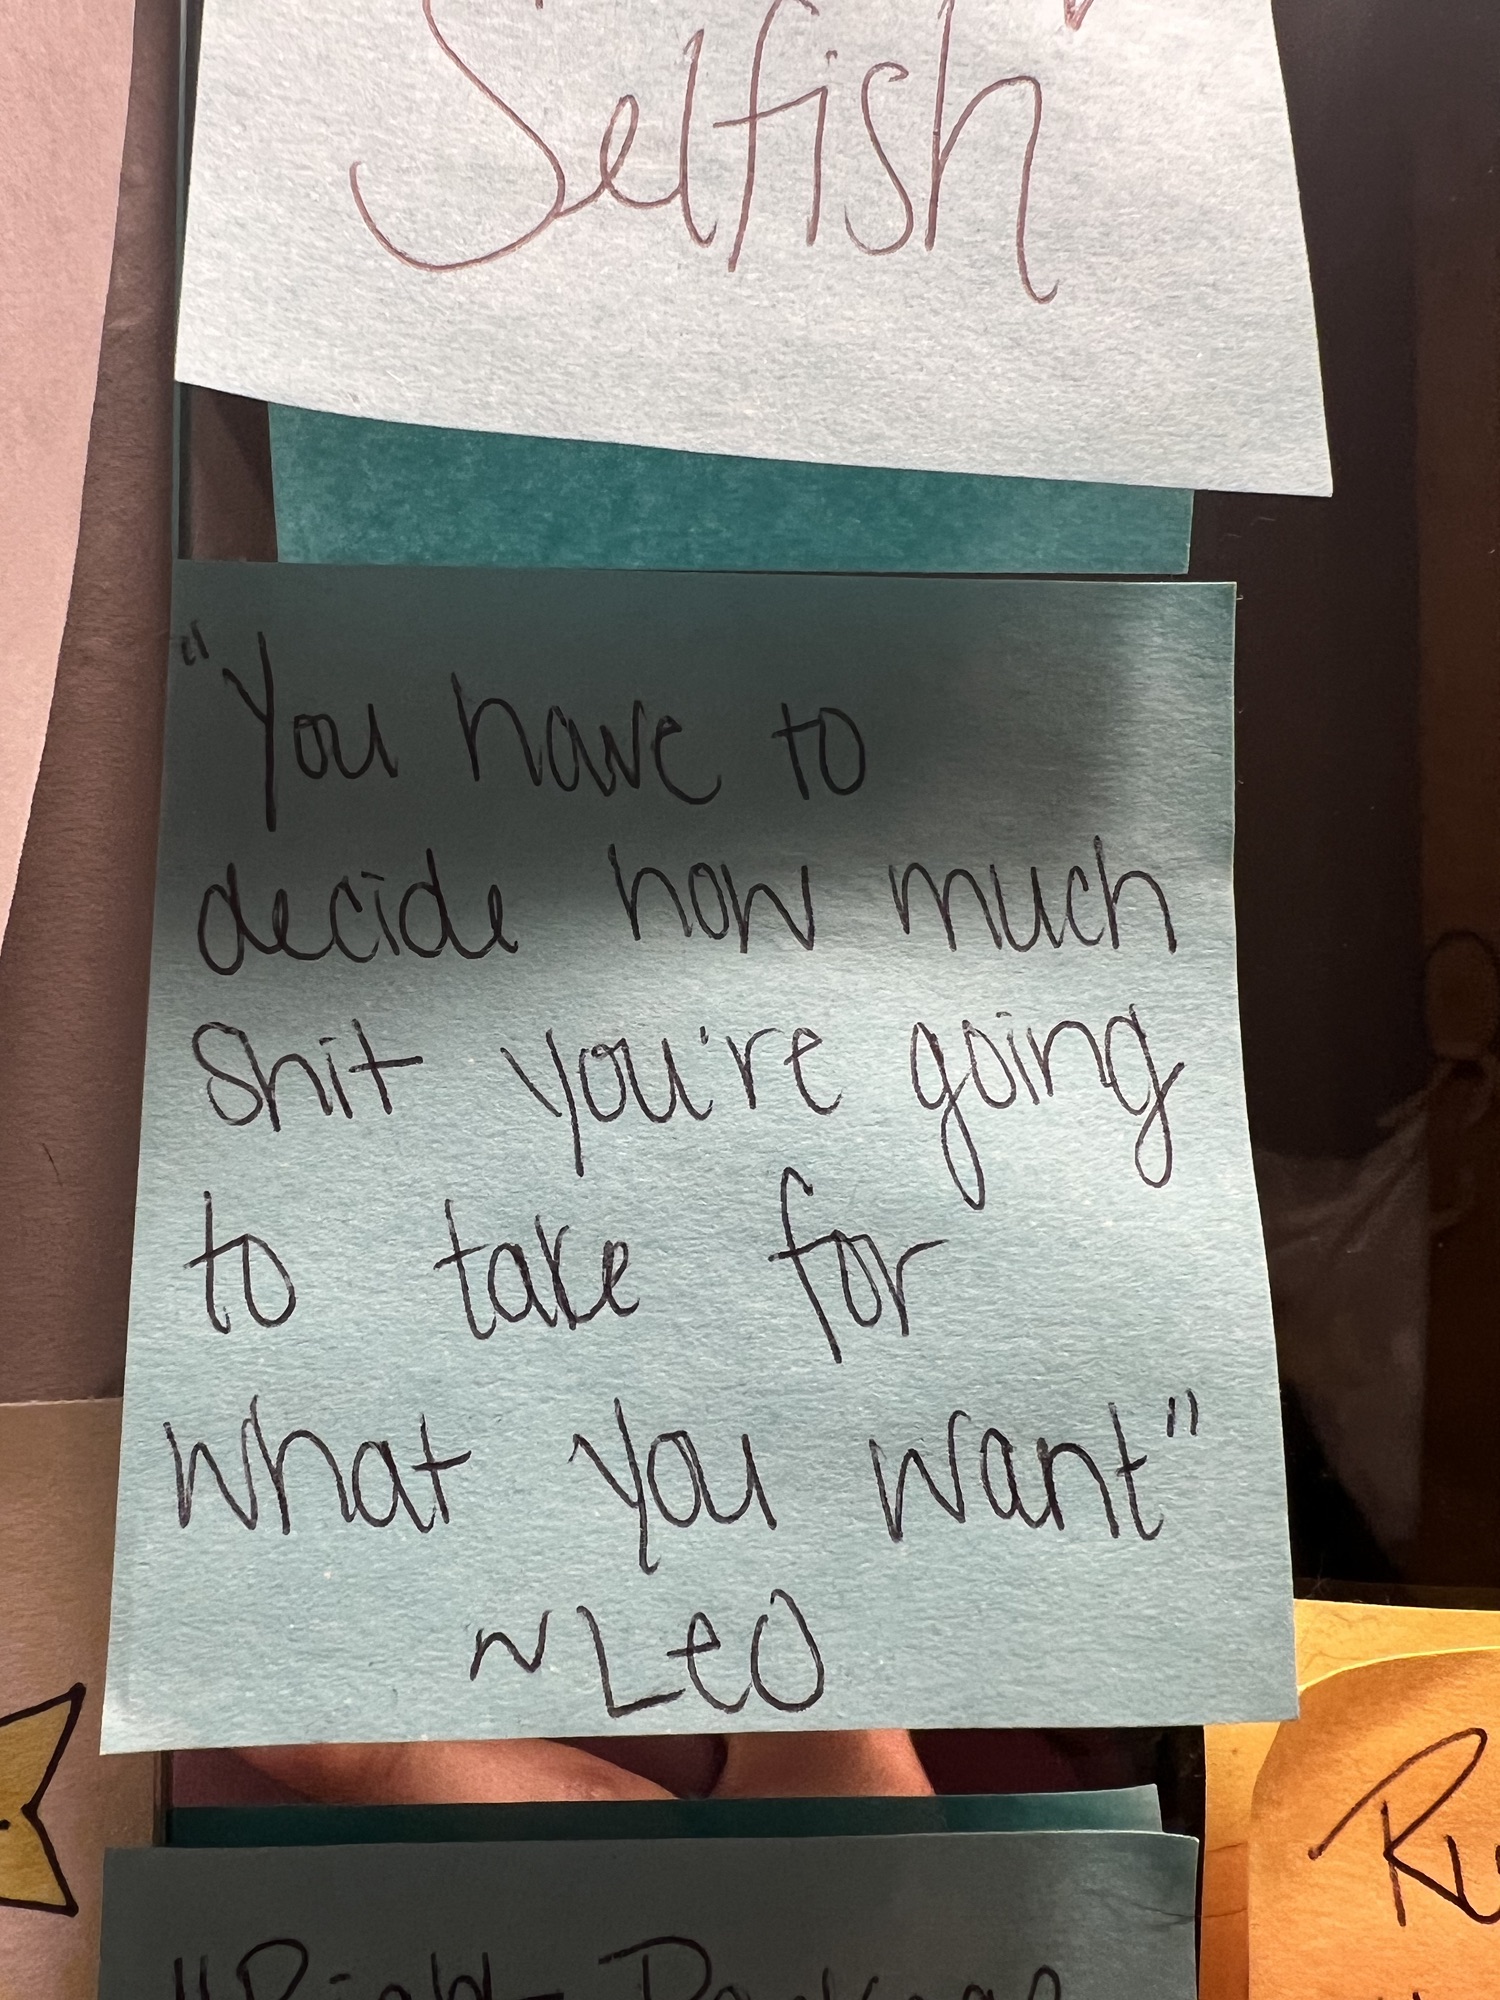 Selfish"
"You have to
decide how much
shit you're going
to take for
what you want"
~Leo